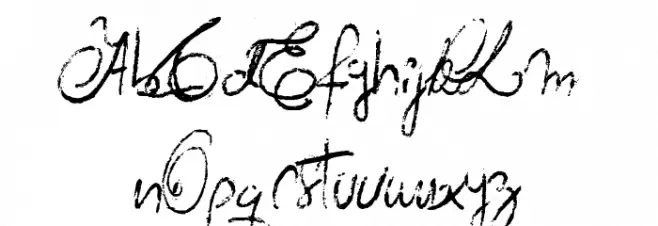 AbCdEfghijklm
nOpqrstuvwxyz